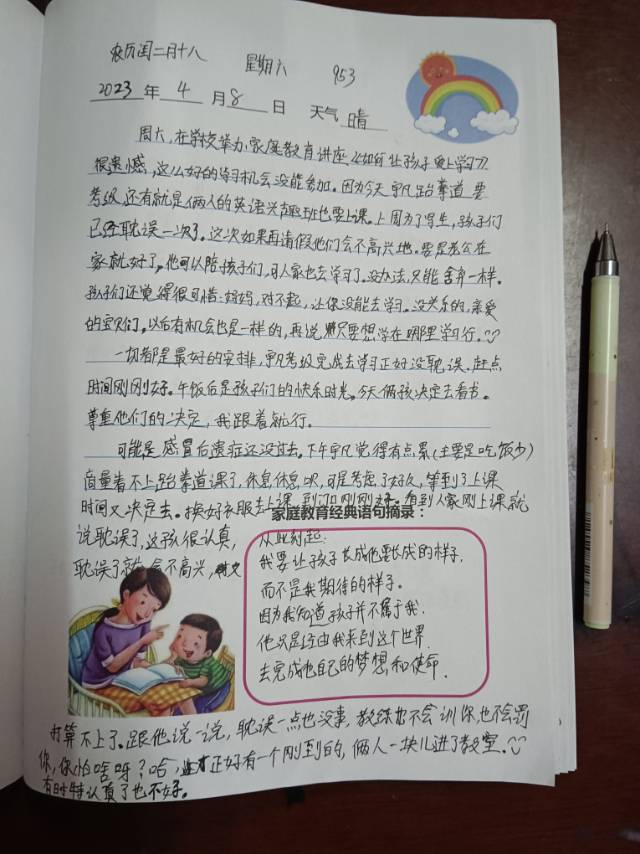 农历闰二月十八 星期六 953
2023年 4月8日 天气 晴
周六，在学校举办家庭教育讲座《如何让孩子爱上学习》
很遗憾，这么好的学习机会没能参加。因为今天宇凡跆拳道要
考级，还有就是俩人的英语兴趣班也要上课。上周为了写生，孩子们
已经耽误一次了。这次如果再请假他们会不高兴地。要是老公在
家就好了，他可以陪孩子们，我人家也去学习了。没办法，只能舍弃一样。
孩子们还觉得很可惜：妈妈，对不起，让你没能去学习。没关系的，亲爱
的宝贝们。以后有机会也是一样的，再说只要想学在哪里学习行。
一切都是最好的安排，宇凡考级完成去学习正好没耽误，赶点
时间刚刚好。午饭后是孩子们的快乐时光，今天俩孩决定去看书。
尊重他们的决定，我跟着就行。
可能是感冒后遗症还没过去。下午宇凡觉得有点累（主要是吃饭少）
商量着不上跆拳道课了，休息休息呗，可是考虑了好久，等到了上课
时间又决定去。换好衣服去上课，到门口刚刚好。看到人家刚上课就
说耽误了，这孩很认真，
耽误了就会不高兴，
家庭教育经典语句摘录：
从此刻起：
我要让孩子长成他要长成的样子，
而不是我期待的样子。
因为我知道孩子并不属于我，
他只是经由我来到这个世界，
去完成他自己的梦想和使命。
打算不上了。跟他说一说，耽误一点也没事，教练也不会训你，也不会罚
你，你怕啥呀？哈，正好有一个刚到的，俩人一块儿进了教室。
有时特认真了也不好。